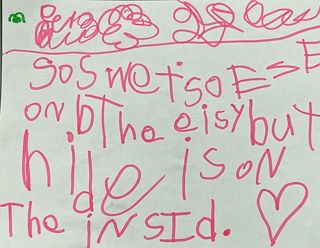 SOSWeTSOESE
ONbThe eisybut
hide isoN
The iNSId.